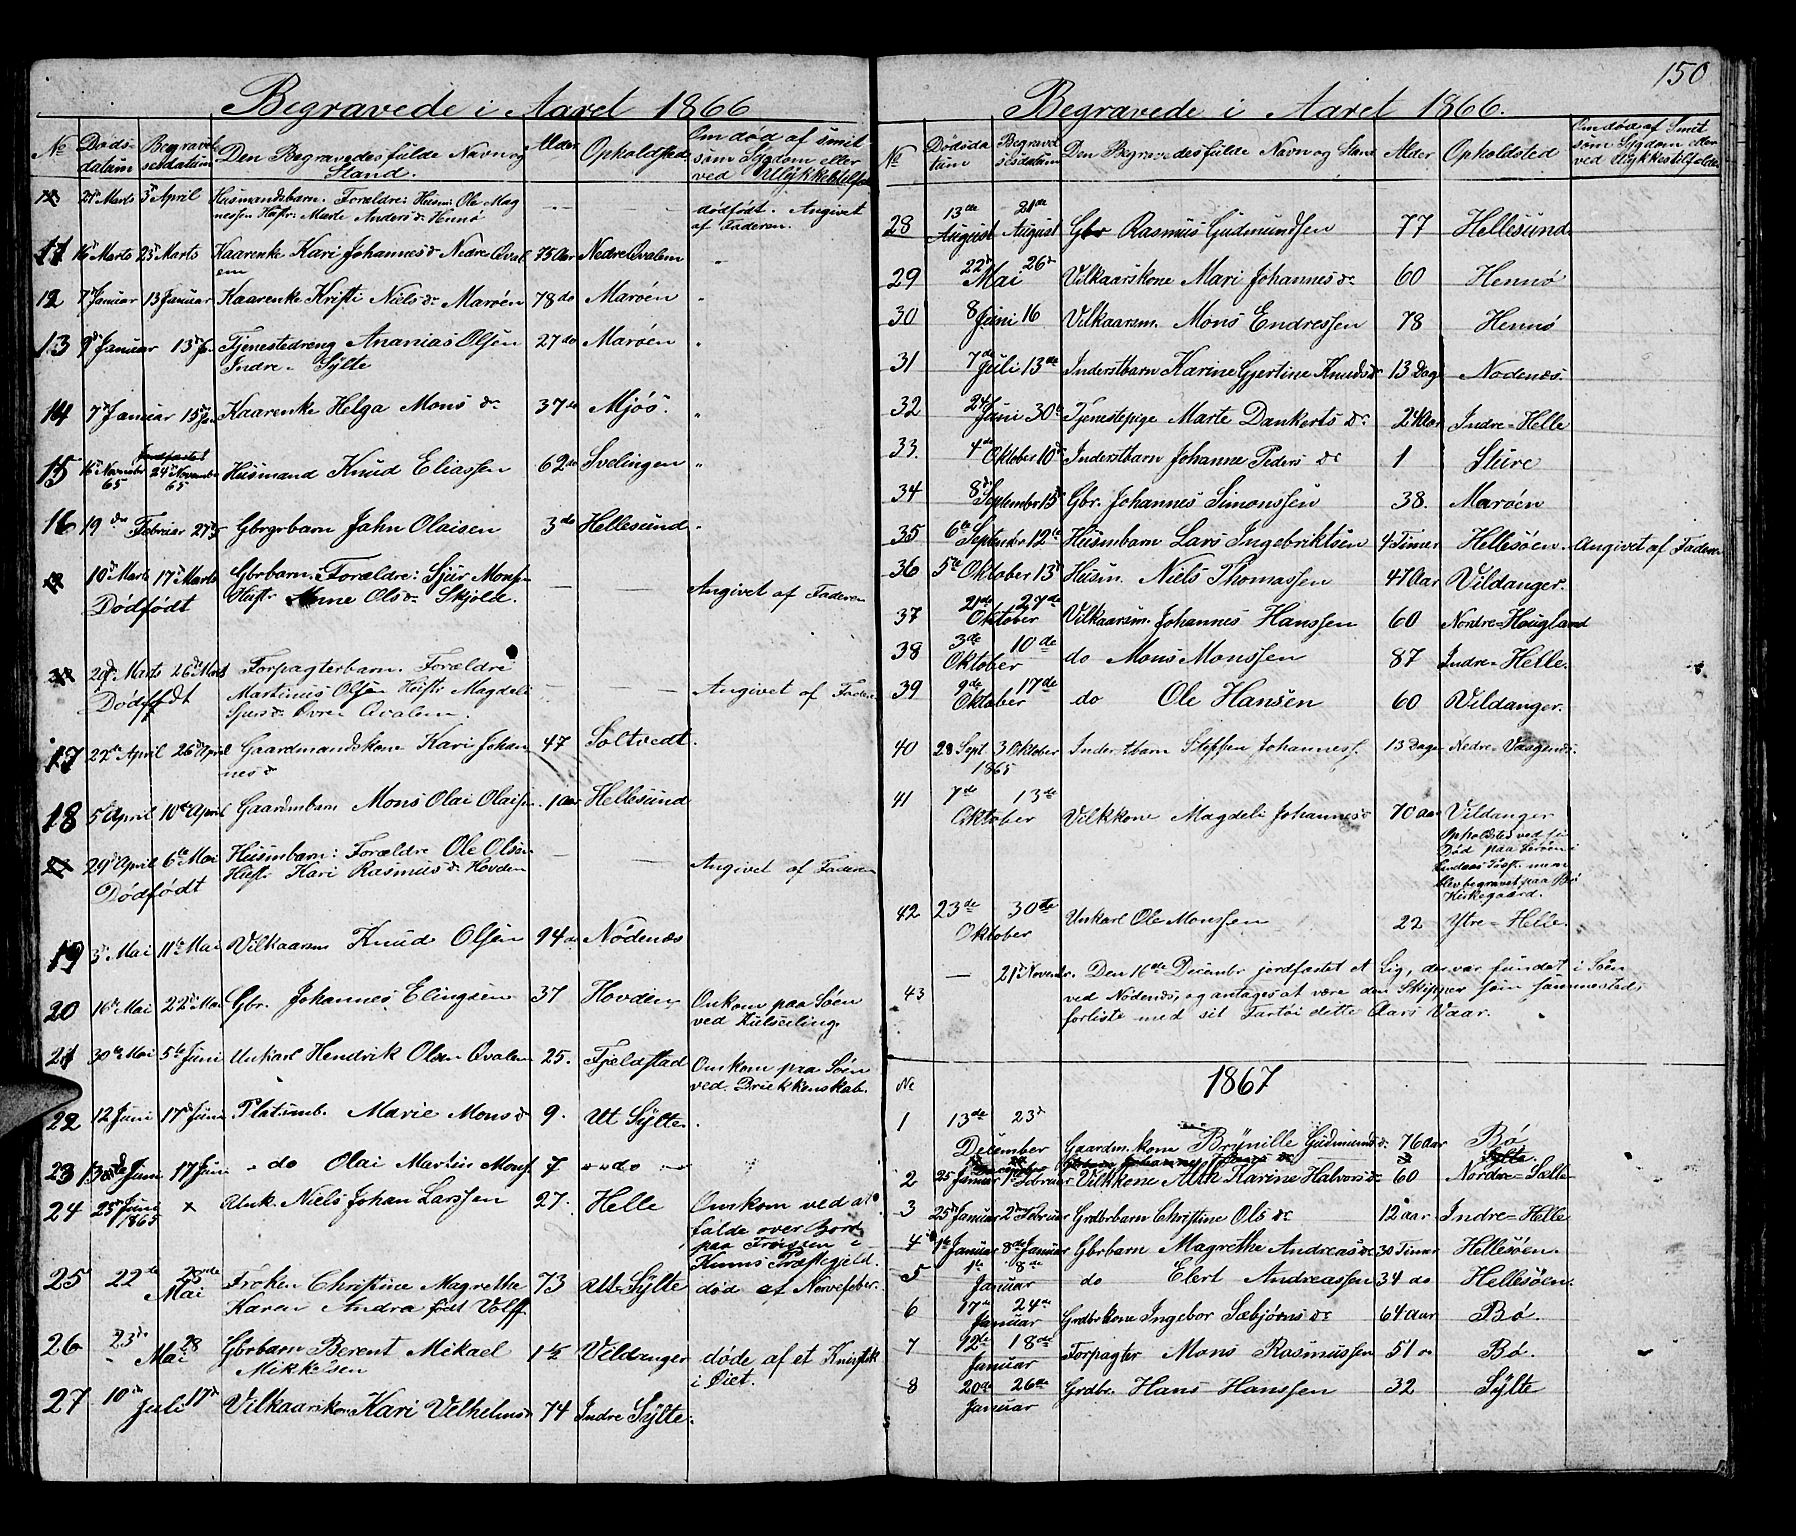 Begravede i Aaret 1866
No Døds-datum Begravel-sesdatum Den Begravedes fulde Navn og Stand. Alder Opholdsted Om død af smit-som Sygdom eller ved Ulykkestilfælde
27de Marts 3de April Husmandsbarn. Forældre: Husm: Ole Mag-
nessen Hustr: Marte Andersdr Hennø — — dødfødt. Angivet
af Faderen.
11 16de Marts 23de Marts Kaarenke Kari Johannesdr Nedre Qval-
em 75 Aar Nedre Qvalem "
12 7de Januar 13 Januar Kaarenke Kristi Nielsdr Marøen 78 do Marøen "
13 9de Januar 13de Ja. Tjenestedreng Ananias Olsen 27 do Marøen "
Indre-Sylte
14 7de Januar 15de Jan Kaarenke Helga Monsdr 37 do Mjøs. "
Jordfæstet
15 16de Novembr 65 24de November 65 Husmand Knud Eliassen 62 do Svelingen "
16 19de Februar 27de Gbrgrbarn Jahn Olaisen 3 do Hellesund "
10de Marts 17de Marts Gbrbarn: Forældre: Sjur Mons-
Dødfødt Hustr Anne Olsdr Skjold. — — Angivet af Faderen
20de Marts 26de Marts Forpagterbarn. Forældre
Dødfødt Martinus Olsen Hustr Magdeli
Sjursdr Øvre Qvalem. — — Angivet af Faderen
17 22de April 26de April Gaardmandskone Kari Johan-
nesdr 47 Soltvedt.
18 5te April 10de April Gaardmbarn Mons Olai Olaisen 1 aar Hellesund
29de April 6te Mai Husmbarn: Forældre Ole Olsen
Dødfødt Hustr Kari Rasmusdr Hovden — — Angivet af Faderen
19 3de Mai 11te Mai Vilkaarsm Knud Olsen 94 do Nødenæs
20 16de Mai 22de Mai Gbr. Johannes Elingsen 37 Hovden Omkom paa Søen
ved Kulseiling.
21 30te Mai 5te Juni Unkarl Hendrik Olsen Qvalem 25. Fjeldstad Omkom paa Søen
ved Drukkenskab.
22 12 Juni 17de Juni Platsmb. Marie Monsdr 9. Ut Sylte.
23 13de Juni 17 Juni " do Olai Martin Monss. 7 " do "
24 25de Juni 1865 x Unk. Niels Johan Larssen 27. Helle Omkom ved at
falde over Bord
paa Frøissen i
Kinns Præstegjeld.
25 22de Mai Frøken Christine Magrethe
Karen Andra født Volff 73 Utt-Sylte død af Nervefeber.
26 23de Mai 28 Gbrbarn Berent Mikael
Mikkelsen 1½ Vildanger døde af et Knivstik
i Øiet.
27 10de Juli 17de Vilkaarskone Kari Velhelmsdr 74 Indre Sylte.
150
Begravede i Aaret 1866.
No Dødsda-tum Begravel-sesdatum Den Begravedes fulde Navn og Stand Alder Opholdsted Om død af Smit-som Sygdom eller ved Ulykkestilfælde
28 13de August 21de August Gbr Rasmus Gudmundsen 77 Hellesund.
29 22de Mai 26de Vilkaarskone Mari Johannesdr 60 Hennø
30 8 Juni 16 Vilkaarsm. Mons Endressen 78 Hennø
31 7de Juli 13de Inderstbarn Karine Gjertine Knudsdr 13 Dage Nødenæs.
32 24de Juni 30te Tjenestepige Marte Dankertsdr 24 Aar Indre-Helle
33. 4de Oktober 10de Inderstbarn Johanne Pedersdr 1 Sture
34 8de September 15de Gbr. Johannes Simonssen 38. Marøen
35 6te September 12te Husmbarn Lars Ingebriktsen 4 Timer Hellesøen. Angivet af Faderen
36 5te Oktober 13de Husm. Niels Thomassen 47 Aar Vildanger.
37 21de Oktober 27de Vilkaarsm. Johannes Hanssen 60 Nordre-Hougland
38 3de Oktober 10de do Mons Monssen 87 Indre-Helle.
39 9de Oktober 17de do Ole Hansen 60 Vildanger.
40 28 Sept 3 Oktober 1865 Inderstbarn Steffen Johanness. 13 Dage Nedre-Vaagenæs.
41 7de Oktober 13de Vilkkone Magdeli Johannesdr 70 aar Vildanger
Opholdsted ved sin
Død paa Lerøen i
Lindaas Præst. men
blev begravet paa Bø
Kirkegaard.
42 23de Oktober 30te Unkarl Ole Monssen 22 Ytre-Helle.
43 — 21de Novembr. Den 16de Decembr jordfæstet et Lig, der var fundet i Søen
ved Nødenæs, og antages at være den Skipper som sammesteds
forliste med sit Fartøi dette Aars Vaar.
No 1867
1 13de December 23de Gaardm.kone Brynille Gudmundsdr 76 aar Bø
2 25de Januar 1ste Februar Vilkkone Alth Karine Halvorsdr 60 Nordre-Sælte
3 25de Januar 2de Februar Grdbrbarn Christine Olsdr 12 aar Indre-Helle
4 1ste Januar 8de Januar Gbrbarn Magrethe Andreasdr 30 Timer Hellesøen.
5 1ste Januar 8de do Elert Andreassen 34 do Hellesøen.
6 17de Januar 24de Grdbrkone Ingebor Sæbjørnsdr 64 aar Bø.
7 12te Januar 18de Forpagter Mons Rasmussen 51 " Bø.
8 20de Januar 26de Grdbr. Hans Hanssen 32 Sylte